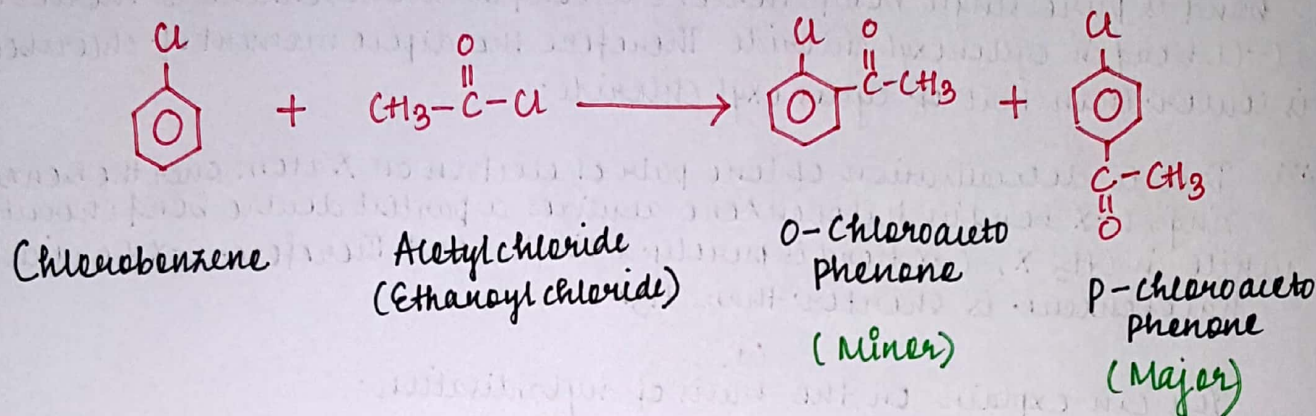 Cl
+
CH3-C-Cl
O
Cl
O
C-CH3
+
Cl
C-CH3
O
Chlorobenzene
Acetylchloride
(Ethanoyl chloride)
O-Chloroaceto
phenone
(Minor)
P-chloroaceto
phenone
(Major)